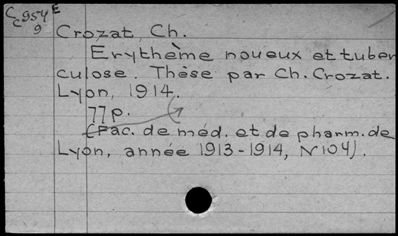 C
C954E
9
Crozat, Ch.
Erythème noueux et tuber
culose. Thèse par Ch. Crozat.
Lyon, 1914.
77p.
(Fac. de méd. et de pharm. de
Lyon, année 1913-1914, N°104).